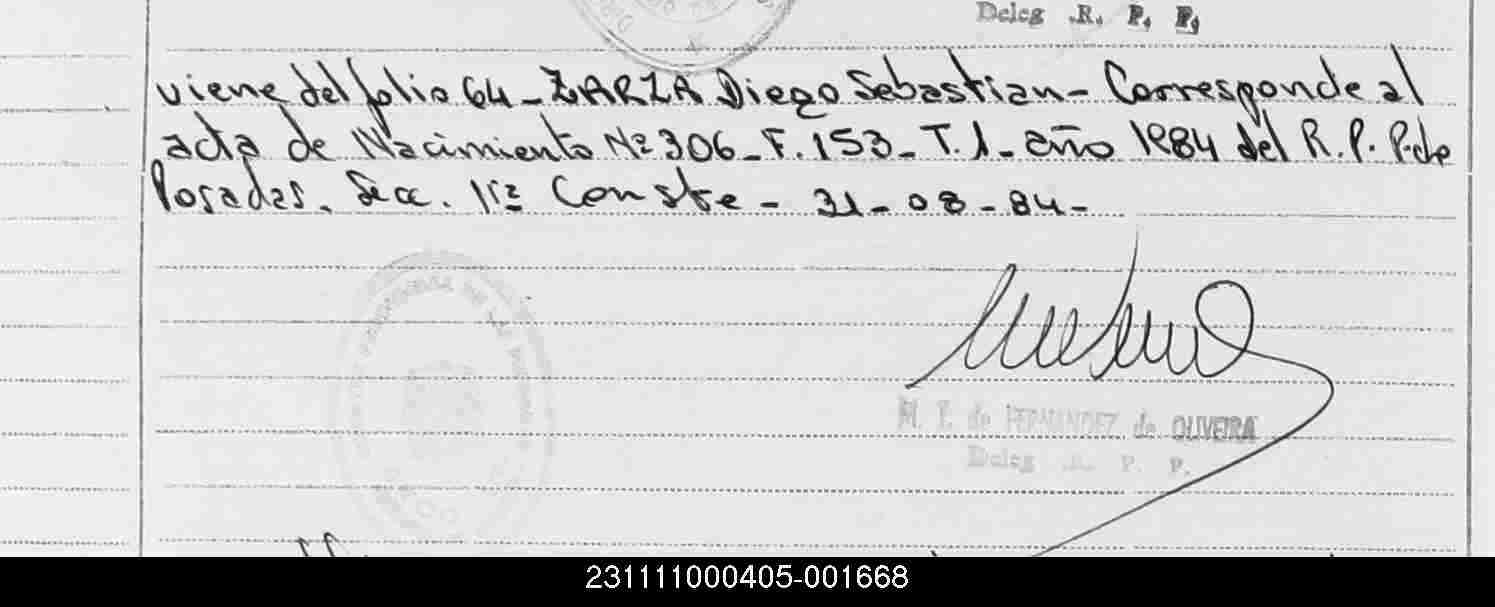 Deleg. R. P. P.
viene del folio 64 - ZARZA Diego Sebastian - Corresponde al
acta de Nacimiento Nº 306 - F. 153 - T. 1 - año 1984 del R. P. P. de
Posadas. Secc. 1ra Conste - 31 - 08 - 84 -
M. T. de FERNANDEZ de OLIVEIRA
Deleg. R. P. P.
231111000405-001668